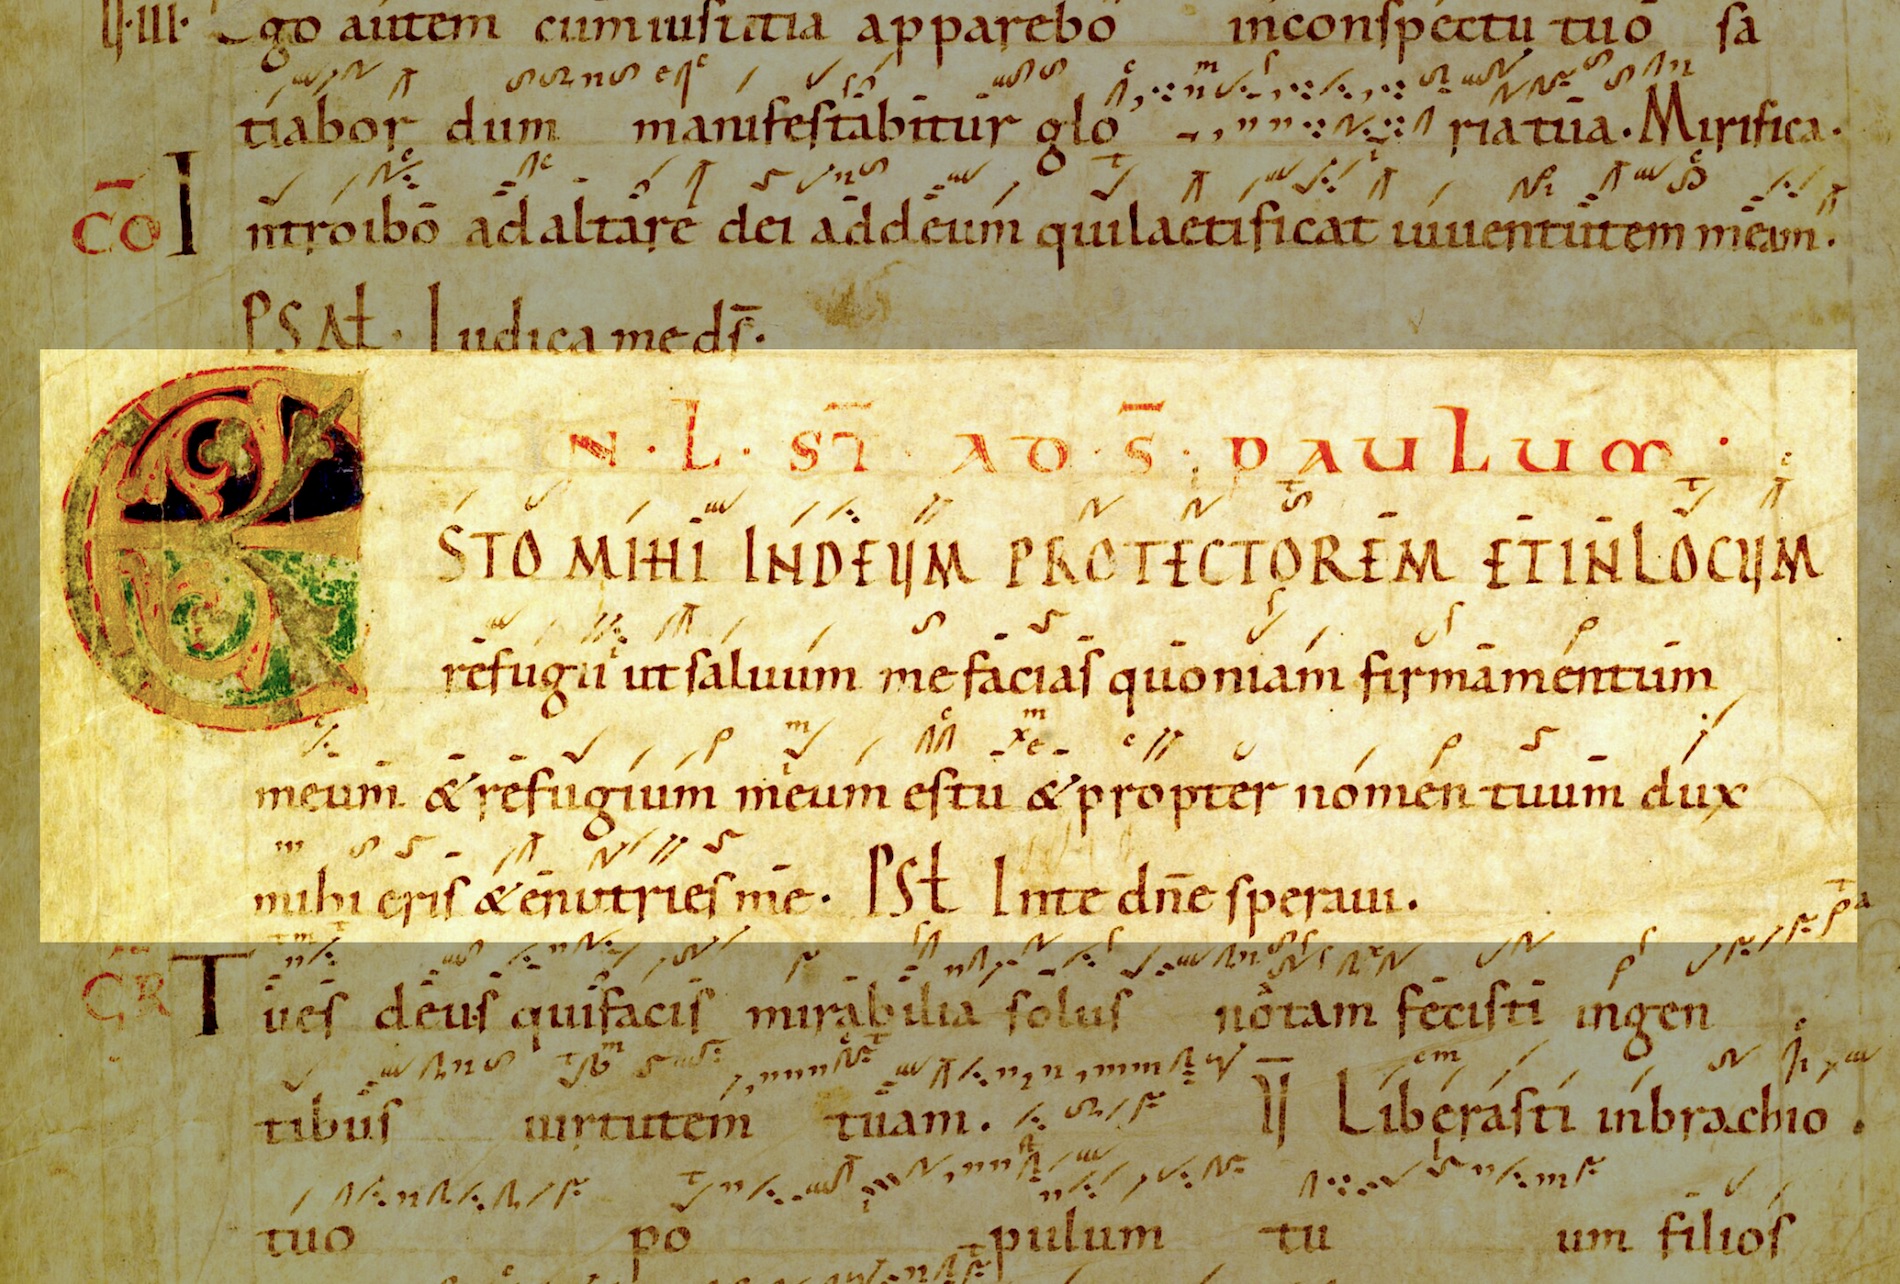 II·III· Ego autem cum iustitia apparebo in conspectu tuo sa
tiabor dum manifestabitur glo ria tua. Mirifica.
CŌ Introibo ad altare dei ad deum qui laetificat iuuentutem meam.
PSAL. Iudica me ds̄.
IN · L · ST̄ · AD · S̄ · PAULUM ·
ESTO MIHI IN DEUM PROTECTOREM ET IN LOCUM
refugii ut saluum me facias quoniam firmamentum
meum & refugium meum es tu & propter nomen tuum dux
mihi eris & enutries me. PSL In te dn̄e speraui.
GR̄ Tu es deus qui facis mirabilia solus notam fecisti in gen
tibus uirtutem tuam. V Liberasti in brachio
tuo po pulum tu um filios